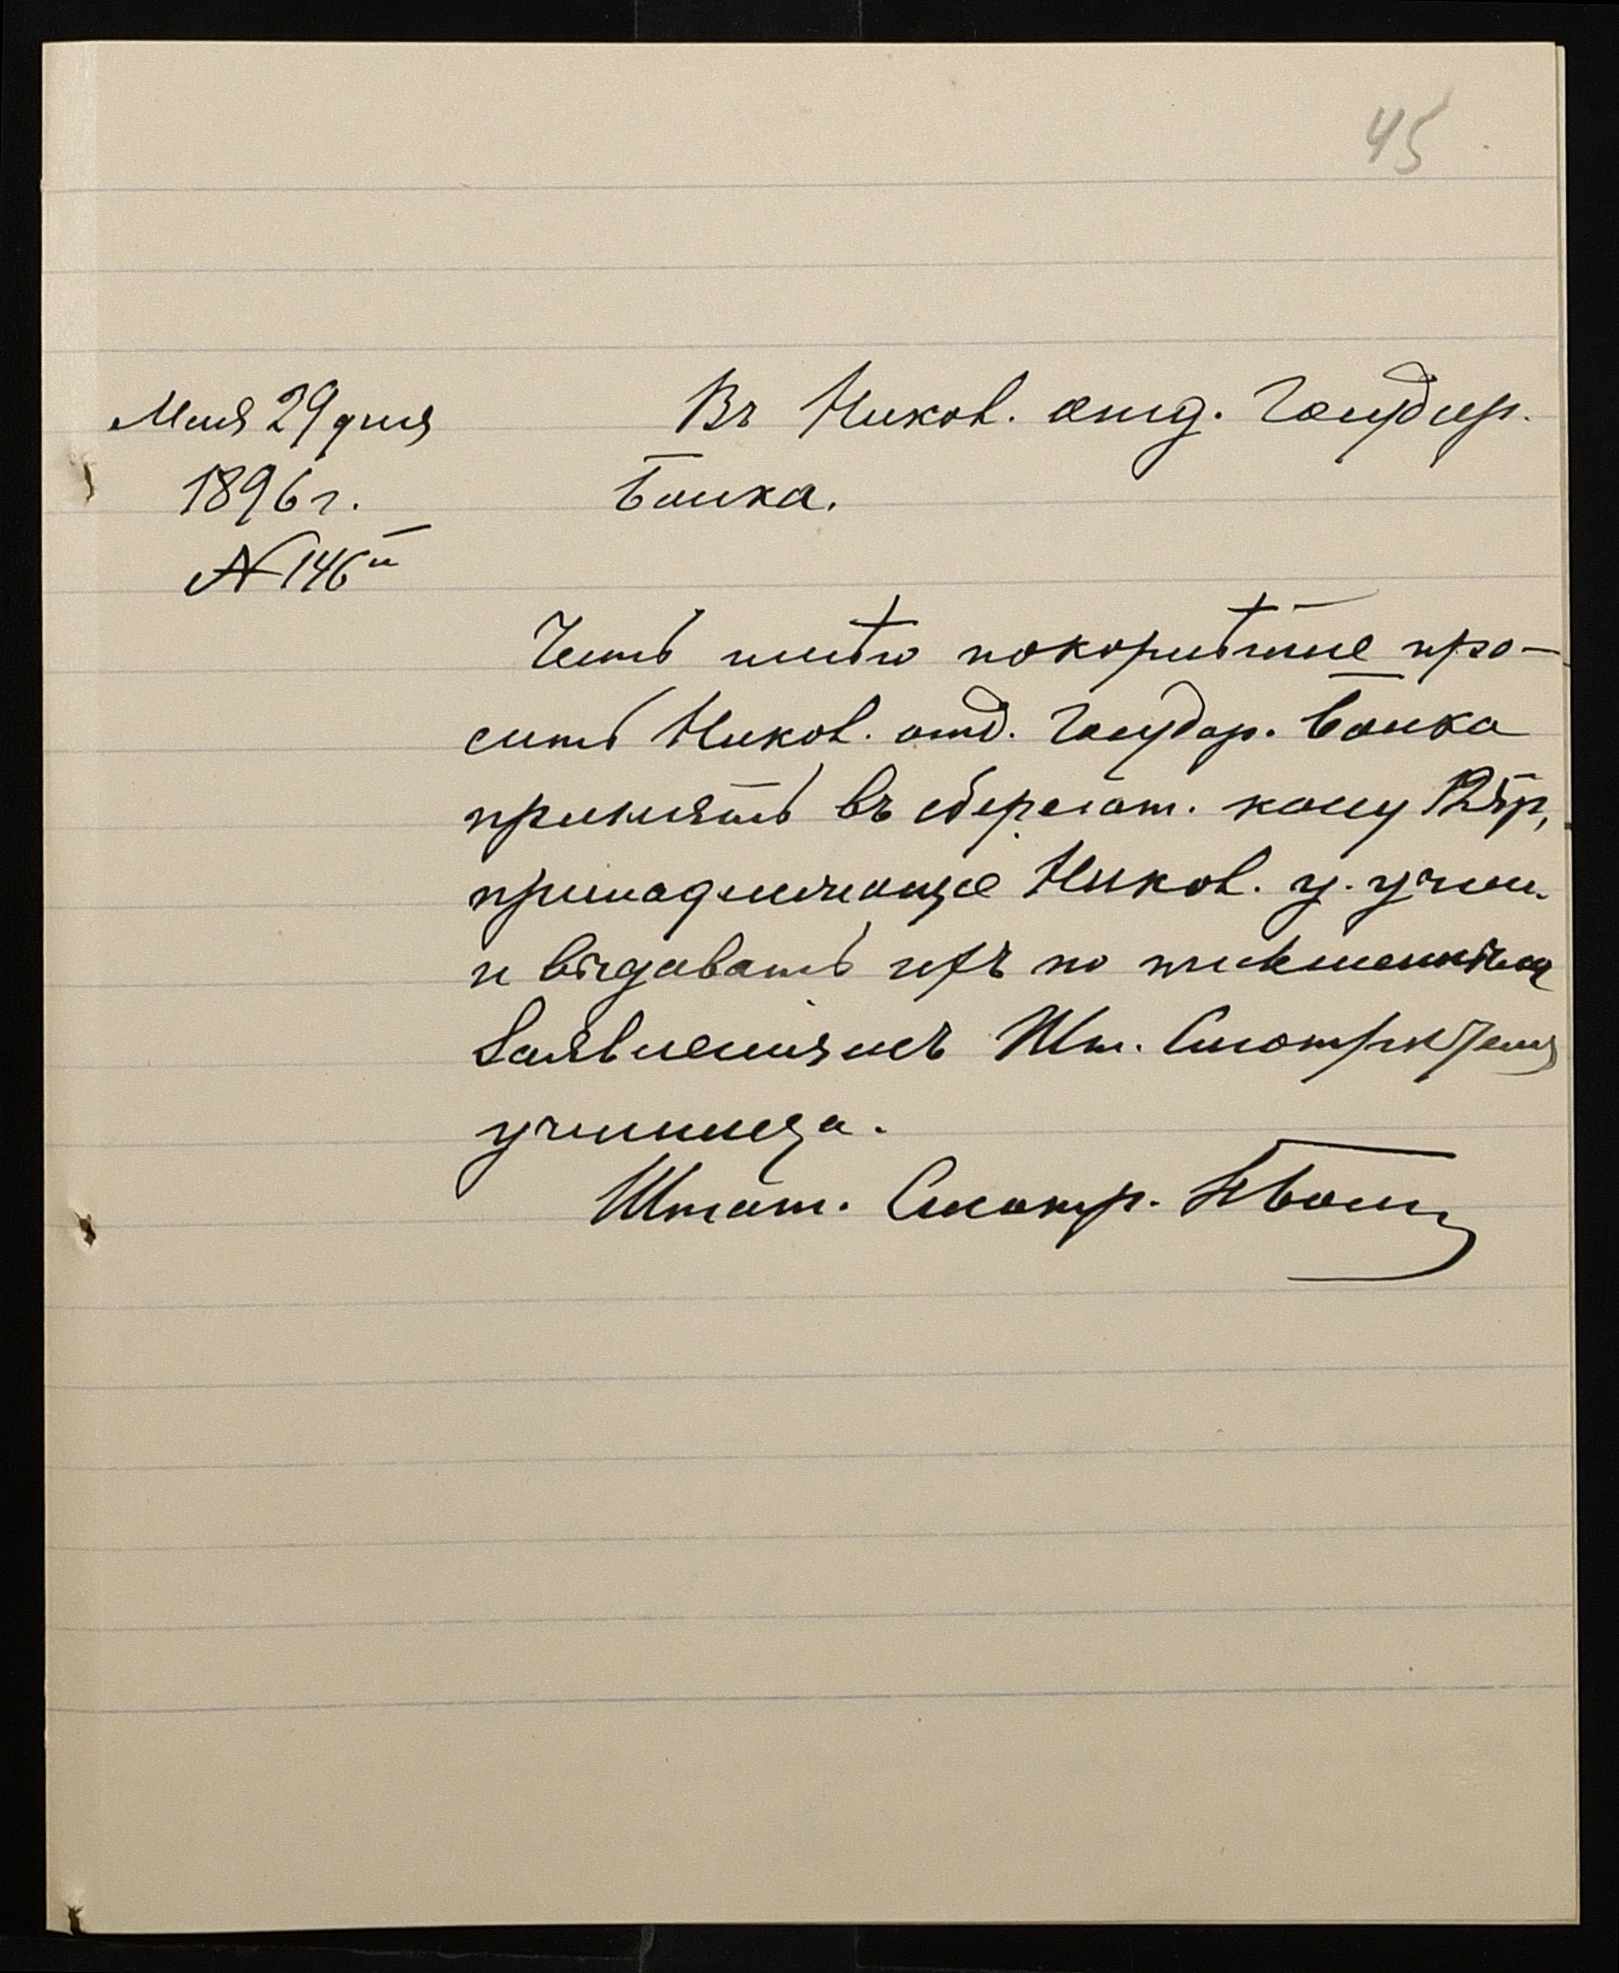 45
Мая 29 дня
1896 г.
№ 146
Въ Никол. отд. Государ.
Банка.
Честь имѣю покорнѣйше про-
сить Никол. отд. Государ. Банка
принять въ сберегат. кассу
принадлежащіе Никол. у. учил.
и выдавать ихъ по письменнымъ
заявленіямъ Шт. Смотрителя
училища.
Штат. Смотр.